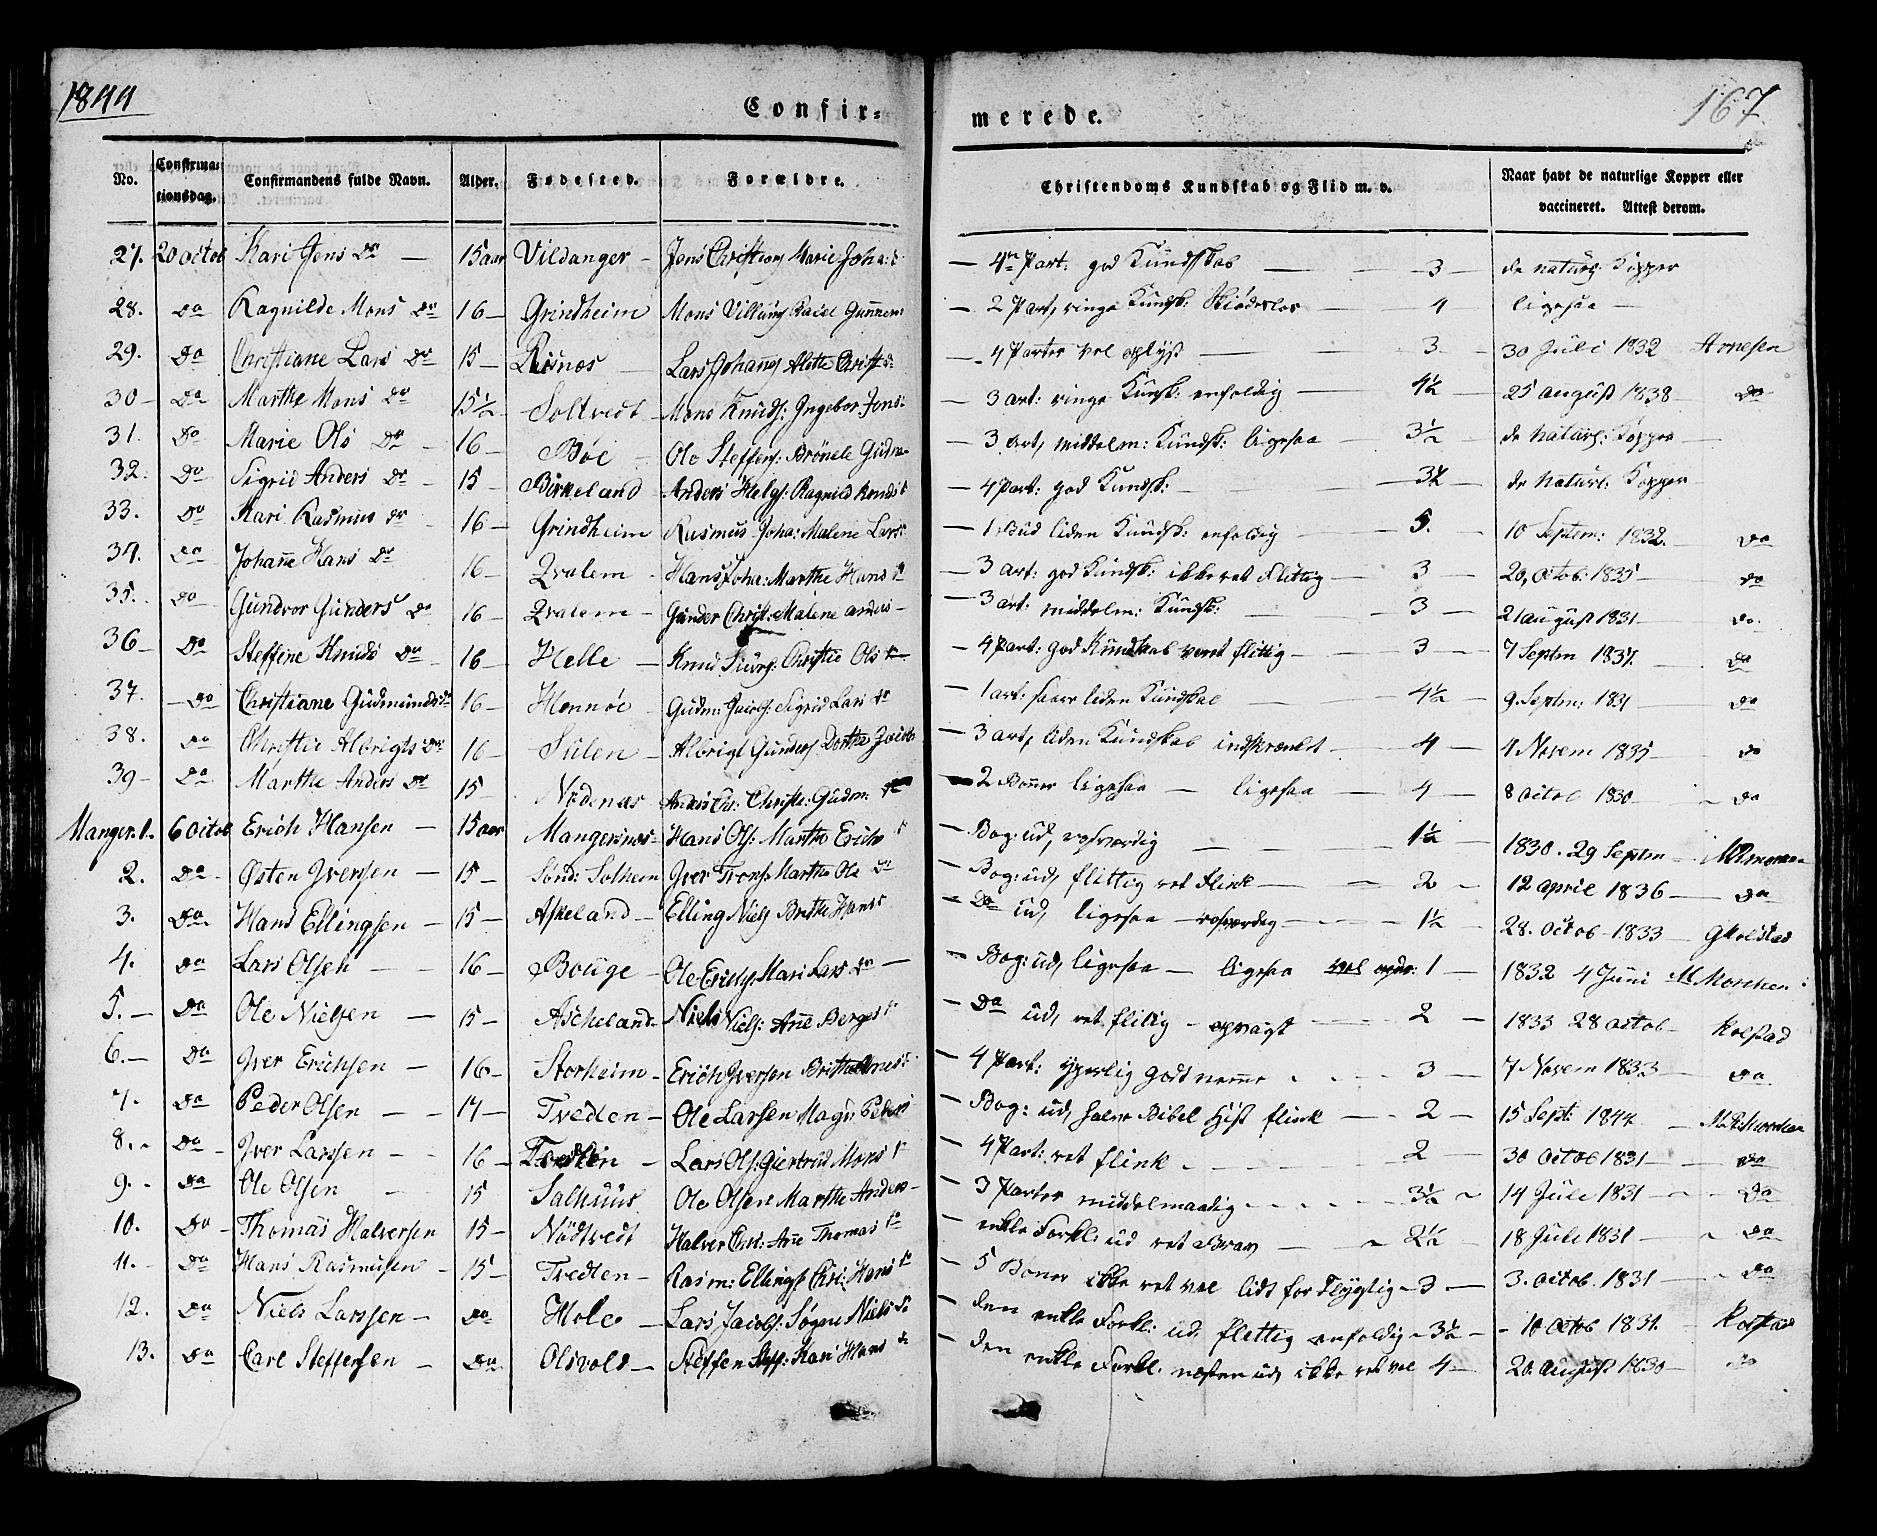 1844
Confir=
merede.
167.
No.
Confirma=
tionsdag.
Confirmandens fulde Navn.
Alder.
Fødested.
Forældre.
Christendoms Kundskab og Flid m. v.
Naar havt de naturlige Kopper eller
vaccineret. Attest derom.
27. 20 octob Kari Jens Dr — 15 aar Vildanger — Jens Christians Marie Joha: — 4re Part: god Kundskab — 3 — de naturl: Kopper
28. Do Ragnilde Mons Dr 16 — Grindheim Mons Villums Gunner — 2 Part, ringe Kundsk: — 4 ligesaa —
29. Do Christiane Lars Dr 15 — Risnes Lars Johans Alette Christ — 4 Parter vel oplyst — 3 — 30 Juli 1832 Arnesen
30 — Do Marthe Mons Dr 15½ — Soltvedt — Mons Knuds: Ingebor Jens — 3 art: ringe Kunsk: enfoldig — 4½ — 25 august 1838 Do
31. Do Marie Ols Dr — 16 — Bøe — Ole Steffens: Brønele Gudm — 3 art, middelm: Kundsk: ligesaa — 3½ — de naturl: Kopper —
32. Do Sigrid Anders Dr 15 — Birkeland — Anders Helgs: Ragnild Knuds — 4 Part: god Kundsk: — 3½ — de naturl: Kopper
33. Do Kari Rasmus Dr 16 — Grindheim Rasmus Joha: Malene Lars — 1 Bud liden Kundsk: enfoldig — 5. 10 Septem: 1832. Do
34. Do Johane Hans Dr 16 — Qvalem — Hans Joha: Marthe Hans Dr — 3 art: god Kundsk: ikke ret flittig — 3 — 20, octob: 1835 — Do
35. Do Gundvor Gunders Do 16 — Qvalem — Gunder Christ: Malene anders — 3 art: middelm: Kundsk: — 3 — 21 august 1831 — Do
36 — Do Steffine Knuds Dr — 16 — Helle — Knud Siurs: Christie Ols — 4 Part: god Kundskab ret flittig — 3 — 7 Septm 1837. — Do
37. — Do Christiane Gudmunds Dr 16 — Hennøe — Gudm: Jacobs: Sigrid Lars Dr — 1 art: liden Kundskab — 4½ — 9. Septm: 1831 — Do
38. Do Christie Albrigts Dr 16 — Sulen — Albrigt Gunders Dorthe Jacob — 3 art, liden Kundskab indskrænket — 4 — 4 Novem 1835 — Do
39 — Do Marthe Anders Dr 15 — Nødenæs Anders Christe: Gudm: — 2 Bønner ligesaa — ligesaa — 4 — 8 octob 1830 — Do
Manger. 1. 6 octob Erich Hansen — 15 aar Mangersnes — Hans Ols: Marthe Erichs — Bog: ud, rosværdig — 1½ — 1830. 29 Septm —
2. Do Østen Iversen — 15 — Sönd: Solhem Iver Marthe Ole Dr — Bog: ud, flittig ret flink — 2 — 12 april 1836 — Do
3. Do Hans Ellingsen — 15 — Askeland — Elling Niels Brithe Hans — Do ud, ligesaa — rosværdig — 1½ — 28. octob 1833 — Kolstad
4. Do Lars Olsen — 16 — Bouge — Ole Erichs: Mari Lars Dr — Bog: ud, ligesaa — ligesaa 1 — 1832 4 Juni
5. — Do Ole Nielsen — 15 — Ascheland — Niels Niels: Ane Berges — Do ud, ret flitig — opvagt — 2 — 1833 28 octob — Kolstad
6. — Do Iver Erichsen — 16 — Storheim — Erich Iversen Brithe — 4 Part: ypperlig godt nemme — 3 — 7 Novem 1833 — Do
7. Do Peder Olsen — 17 — Tvedten — Ole Larsen Peders — Bog: ud, Bibel Hist flink — 2 — 15 Sept: 1844
8. Do Iver Larssen — 16 — Tvedten — Lars Ols: Giertrud Mons — 4 Part: ret flink — 2 — 30 octob 1831 — Do
9. Do Ole Olsen 15 Salhuus Ole Olsen Marthe Anders — 3 Parter middelmaadig — 3½ — 14 Jule 1831 — Do
10. Do — Thomas Halversen 15 — Nødtvedt Halver Ane Thomas — enkle Forkl: ud ret Brav — 2½ — 18 Jule 1831 — Do
11. Do Hans Rasmusen — 15 — Tvedten — Rasm: Ellings: Hans — 5 Bønner ikke ret vel lidt for flygtig — 3 — 3. octob. 1831 — Do
12. Do Niels Larssen — Do Hole — Lars Jacobs: Søgni Niels — den enkle Forkl: ud, flittig enfoldig — 3½ — 10 octob 1831. Kolstad
13. Do Carl Steffensen — Do Olsvold — Steffen Steff: Kari Hans — den enkle Forkl: næsten ud, ikke ret vel 4 — 20. august 1830 — Do